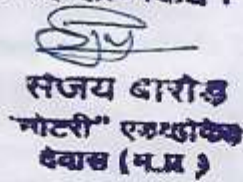 संजय बारोड
"नोटरी" एडव्होकेट
देवास (म.प्र.)